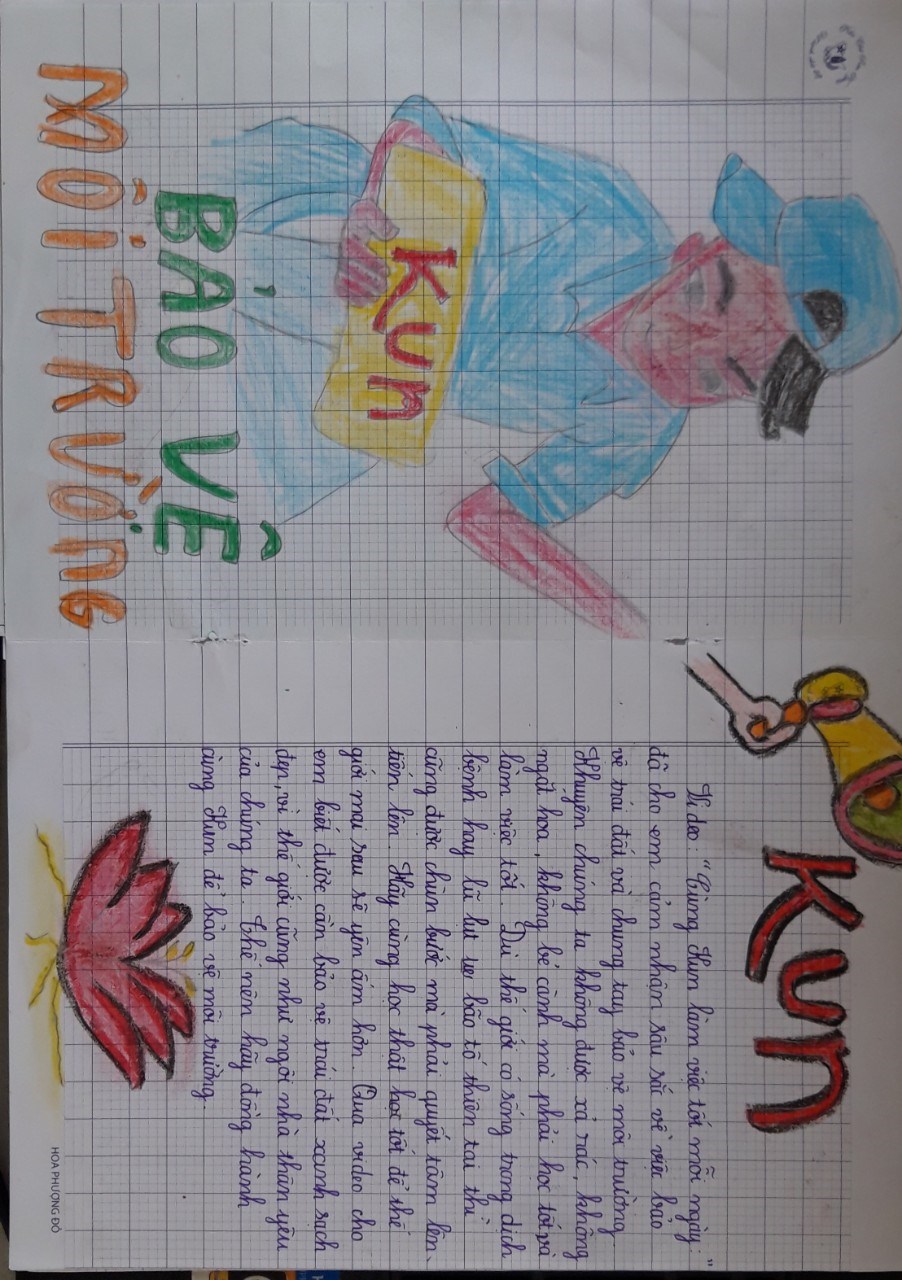 Kun
BẢO VỆ
MÔI TRƯỜNG
Kun
Video: "Cùng Kun làm việc tốt mỗi ngày."
đã cho em cảm nhận sâu sắc về việc bảo
vệ trái đất và chung tay bảo vệ môi trường.
Khuyên chúng ta không được xả rác, không
ngắt hoa, không bẻ cành mà phải học tốt và
làm việc tốt. Dù thế giới có sống trong dịch
bệnh hay lũ lụt bão tố thiên tai thì
cũng được chùn bước mà phải quyết tâm lên,
tiến lên. Hãy cùng học thật học tốt để thế
giới mai sau sẽ yên ấm hơn. Qua video cho
em biết được cần bảo vệ trái đất xanh sạch
đẹp, vì thế giới cũng như ngôi nhà thân yêu
của chúng ta. Thế nên hãy đồng hành
cùng Kun để bảo vệ môi trường.
HOA PHƯỢNG ĐỎ